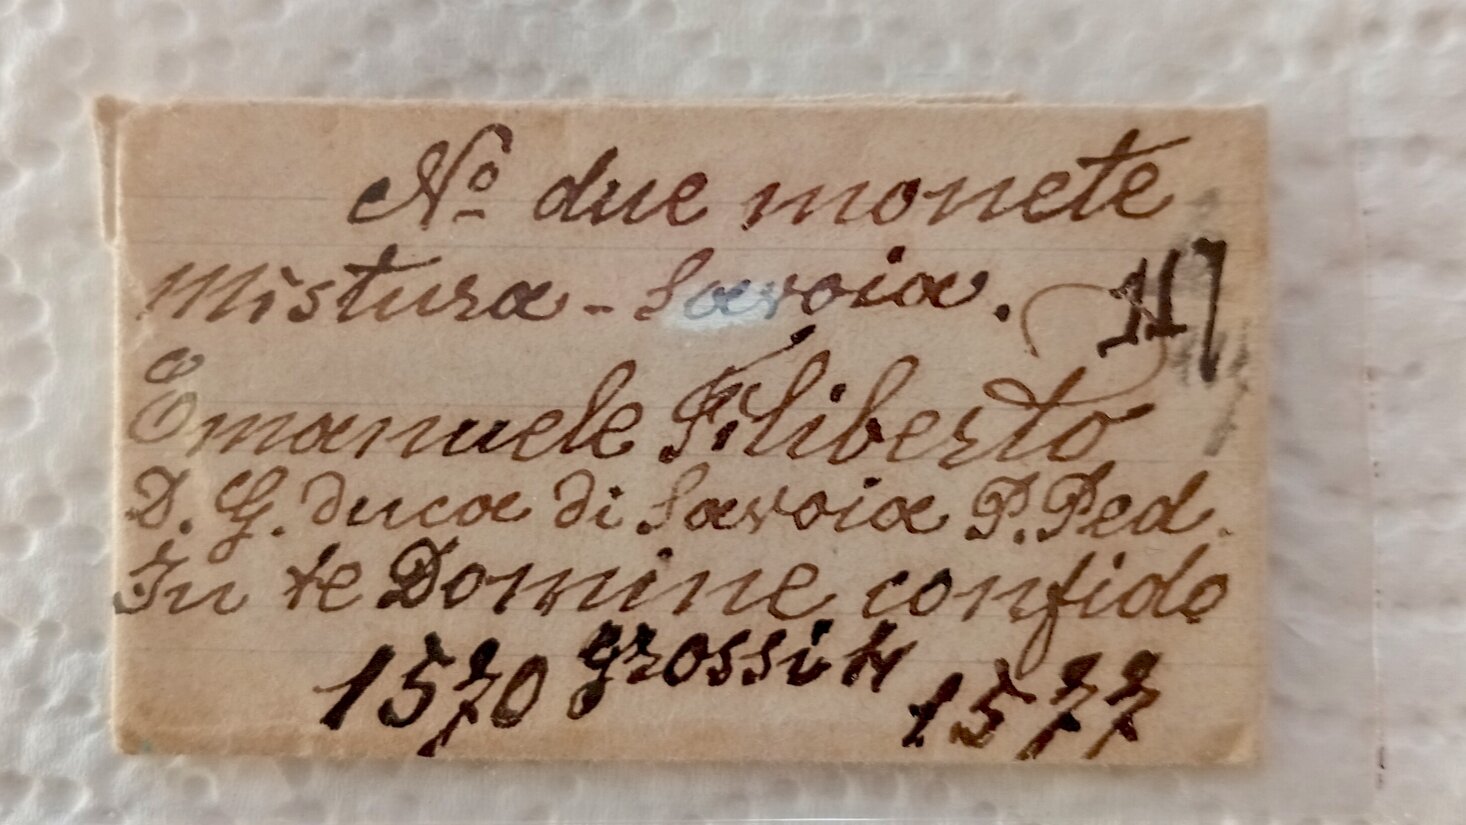 No due monete
Mistura - Savoia.
Emanuele Filiberto
D. G. duca di Savoia P. Ped.
In te Domine confido
1570 Grossi 4 1577